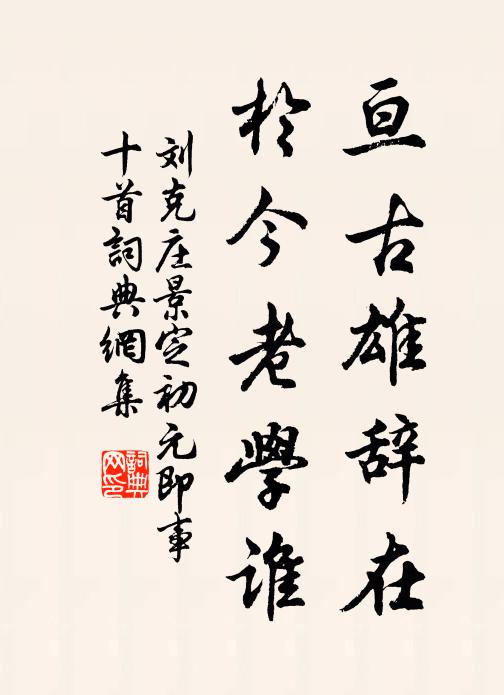 亘古雄辞在
於今老學谁
刘克庄景定初元即事
十首詞典網集
詞典網印